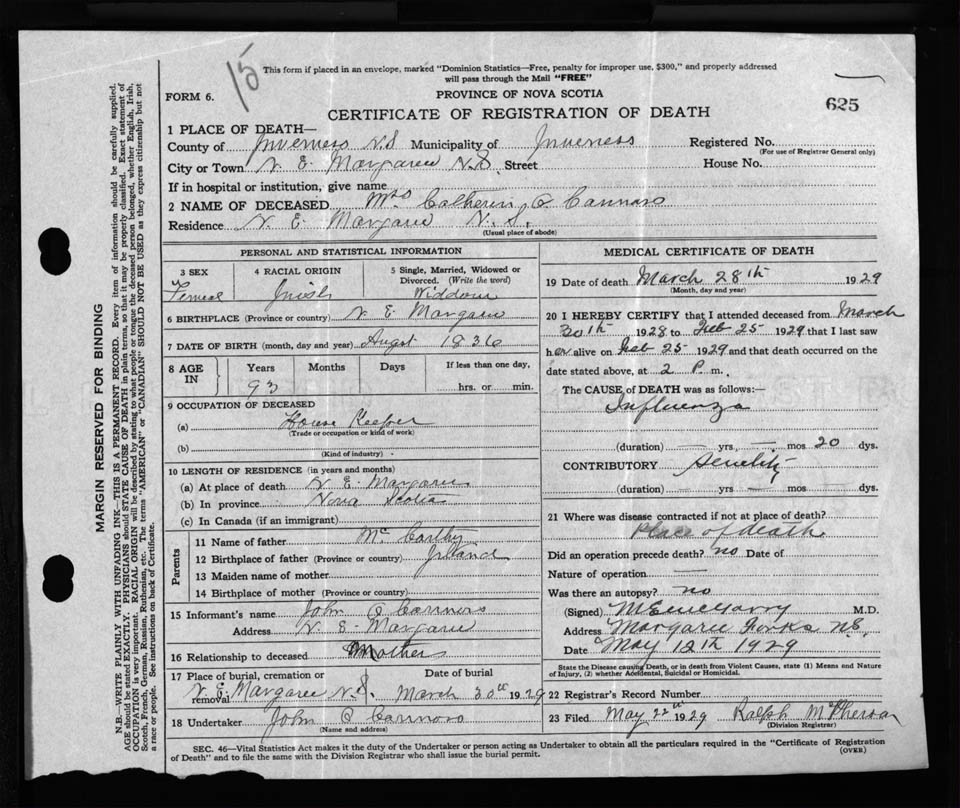 15
This form if placed in an envelope, marked "Dominion Statistics—Free, penalty for improper use, $300," and properly addressed
will pass through the Mail "FREE"
FORM 6.
PROVINCE OF NOVA SCOTIA
625
CERTIFICATE OF REGISTRATION OF DEATH
1 PLACE OF DEATH—
County of Inverness N.S Municipality of Inverness Registered No.
(For use of Registrar General only)
City or Town N. E. Margaree N.S. Street House No.
If in hospital or institution, give name
2 NAME OF DECEASED Mrs Catherin Q Cannors
Residence N. E. Margaree N. S.
(Usual place of abode)
PERSONAL AND STATISTICAL INFORMATION
3 SEX 4 RACIAL ORIGIN 5 Single, Married, Widowed or
Divorced. (Write the word)
Irish Widdow
6 BIRTHPLACE (Province or country) N E. Margaree
7 DATE OF BIRTH (month, day and year) Augst 1836
8 AGE IN Years Months Days If less than one day,
93 hrs. or min.
9 OCCUPATION OF DECEASED
(a) House Keeper
(Trade or occupation or kind of work)
(b)
(Kind of industry)
10 LENGTH OF RESIDENCE (in years and months)
(a) At place of death N E. Margaree
(b) In province Nova Scotia
(c) In Canada (if an immigrant)
Parents
11 Name of father Mc Carthy
12 Birthplace of father (Province or country) Irland
13 Maiden name of mother
14 Birthplace of mother (Province or country)
15 Informant's name John Q Cannors
Address N. E. Margaree
16 Relationship to deceased Mother
17 Place of burial, cremation or removal Date of burial
N. E. Margaree N.S. March 30th 1929
18 Undertaker John Q Cannors
(Name and address)
MEDICAL CERTIFICATE OF DEATH
19 Date of death March 28th 1929
(Month, day and year)
20 I HEREBY CERTIFY that I attended deceased from March
30th 1928 to Feb 25 1929 that I last saw
her alive on Feb 25 1929 and that death occurred on the
date stated above, at 2 P. m.
The CAUSE of DEATH was as follows:—
Influenza
(duration) — yrs. — mos 20 dys.
CONTRIBUTORY Senility
(duration) — yrs. — mos — dys.
21 Where was disease contracted if not at place of death?
Place of death.
Did an operation precede death? no Date of
Nature of operation —
Was there an autopsy? no
(Signed) M.D.
Address Margaree Forks N.E.
Date May 12th 1929
State the Disease causing Death, or in death from Violent Causes, state (1) Means and Nature
of Injury, (2) whether Accidental, Suicidal or Homicidal.
22 Registrar's Record Number
23 Filed May 22nd 1929 Ralph McPherson
(Division Registrar)
SEC. 46—Vital Statistics Act makes it the duty of the Undertaker or person acting as Undertaker to obtain all the particulars required in the "Certificate of Registration
of Death" and to file the same with the Division Registrar who shall issue the burial permit.
(OVER)
MARGIN RESERVED FOR BINDING
N.B.—WRITE PLAINLY WITH UNFADING INK—THIS IS A PERMANENT RECORD. Every item of information should be carefully supplied.
AGE should be stated EXACTLY. PHYSICIANS should STATE CAUSE OF DEATH in plain terms, so that it may be properly classified. Exact statement of
OCCUPATION is very important. RACIAL ORIGIN will be described by stating to what people or tongue the deceased person belonged, whether English, Irish,
Scotch, French, German, Russian, Ruthenian, etc. The terms "AMERICAN" or "CANADIAN" SHOULD NOT BE USED as they express citizenship but not
a race or people. See instructions on back of Certificate.